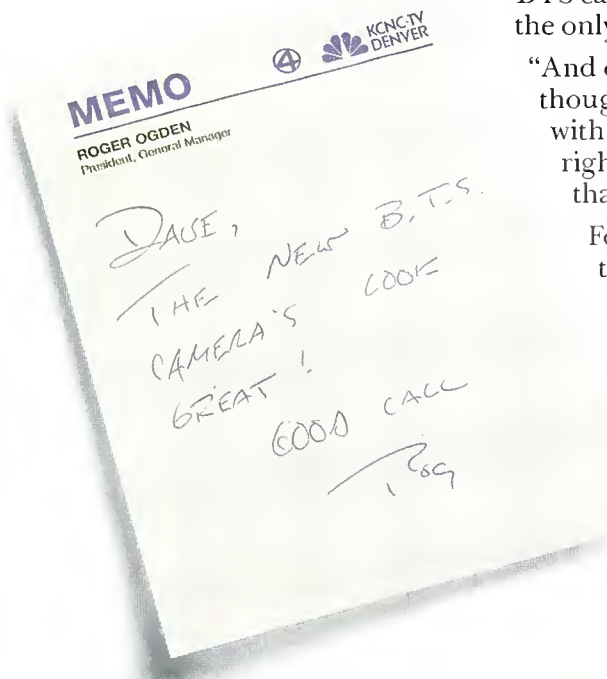 MEMO
4
KCNC-TV
DENVER
ROGER OGDEN
President, General Manager
DAVE,
THE NEW B.T.S.
CAMERA'S LOOK
GREAT!
GOOD CALL
Rog
the only
"And
though
with
righ
tha
Fo
t